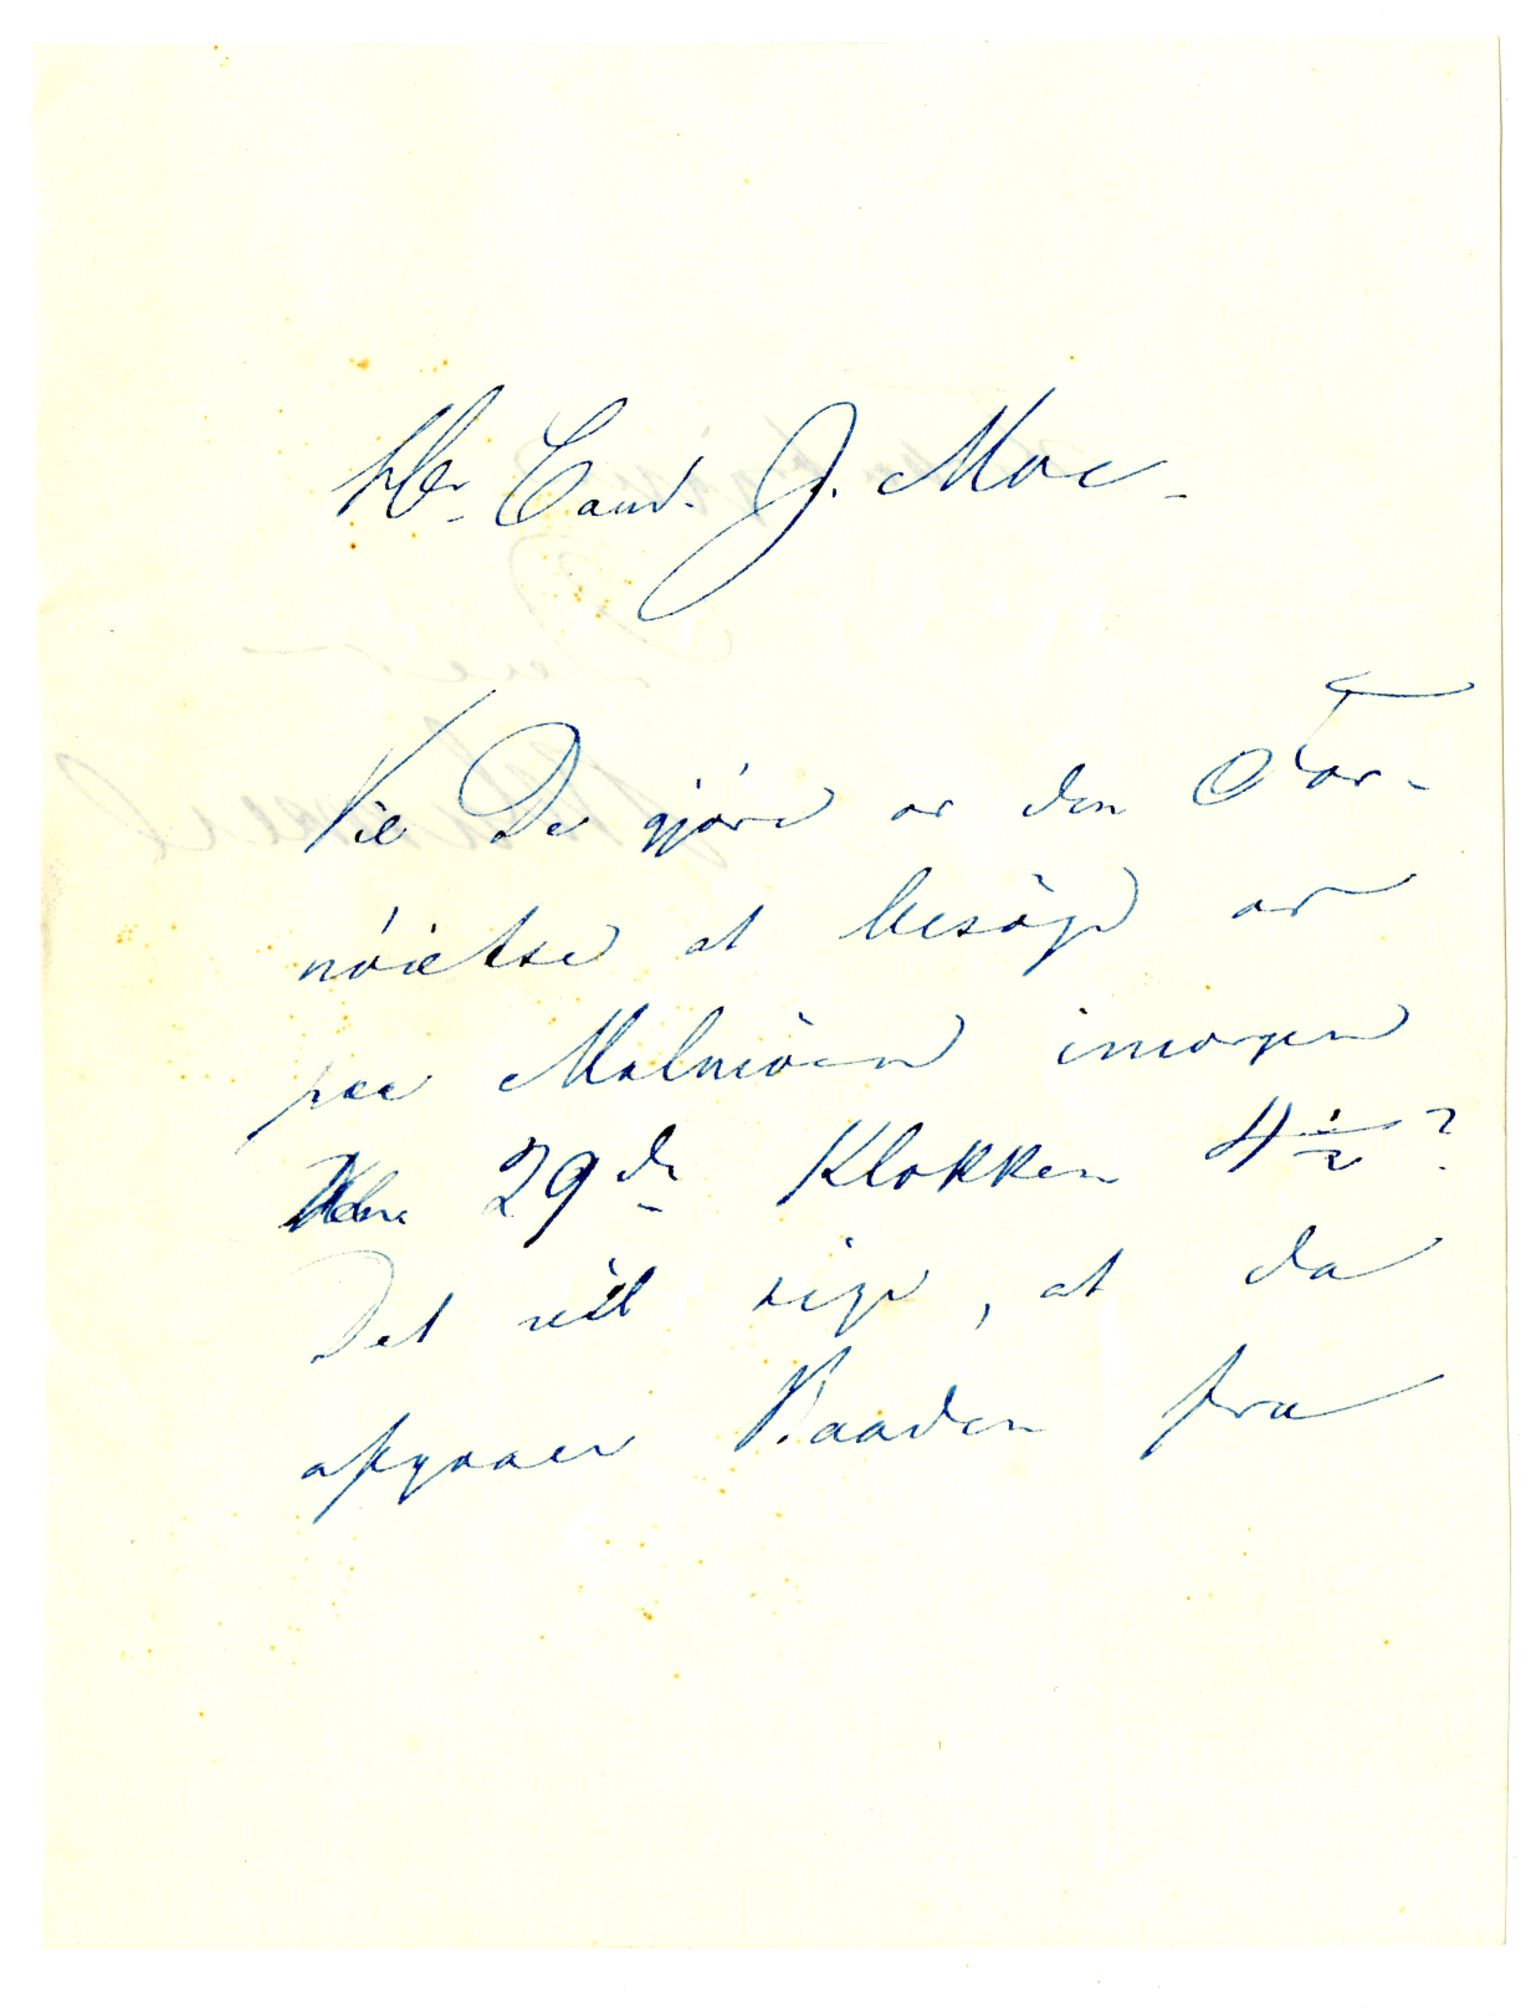 Hr. Cand. J. Moe.
Vil De gjöre os den For-
nöielse at besöge os
paa Malmöen imorgen
den 29de Klokken 4 1/2?
Det vil sige, at da
afgaaer Baaden fra